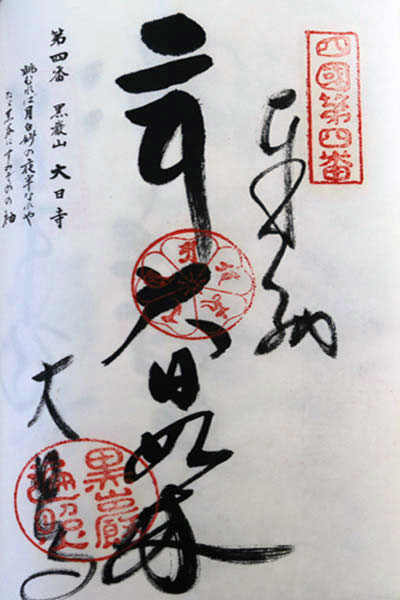 四國第四番
奉納
大日如来
大日寺
第四番 黒巌山 大日寺
眺むれば月白妙の夜半なれや
たゞ黒谷にすみぞめの袖